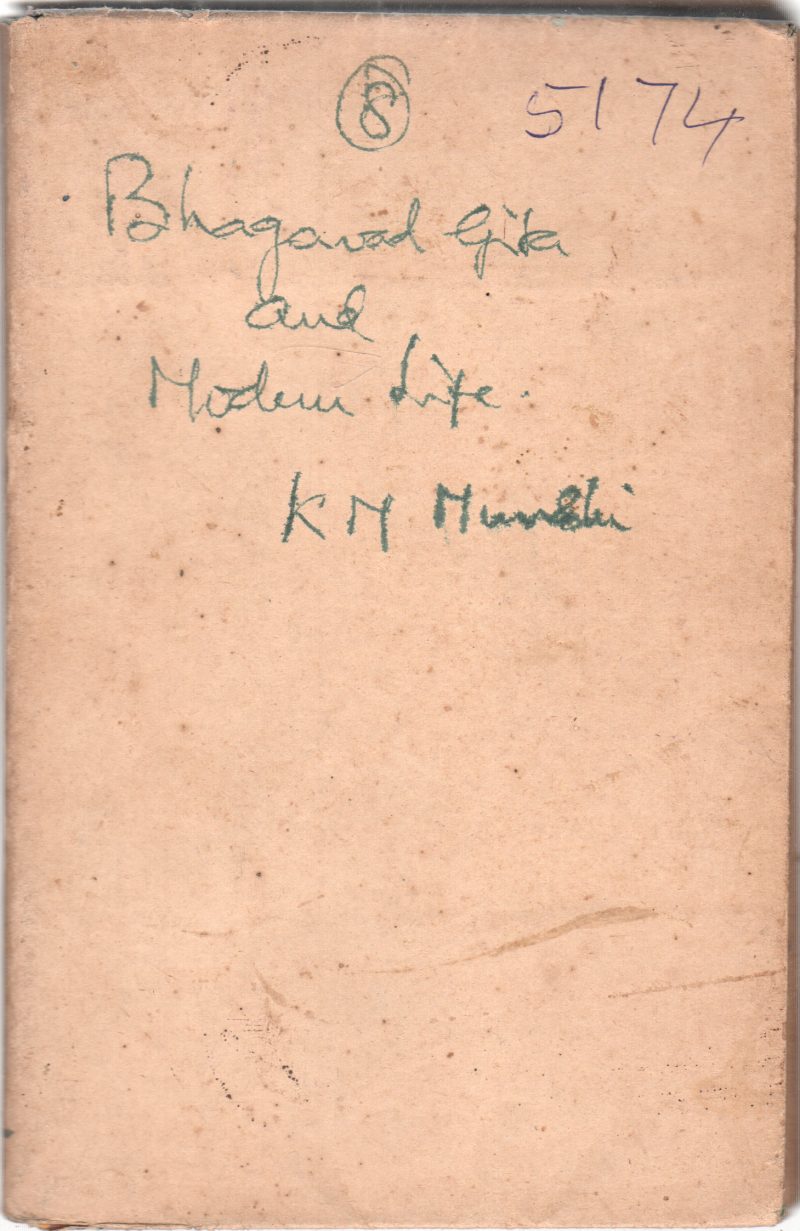 8 5174
Bhagavad Gita
and
Modern Life.
K M Munshi